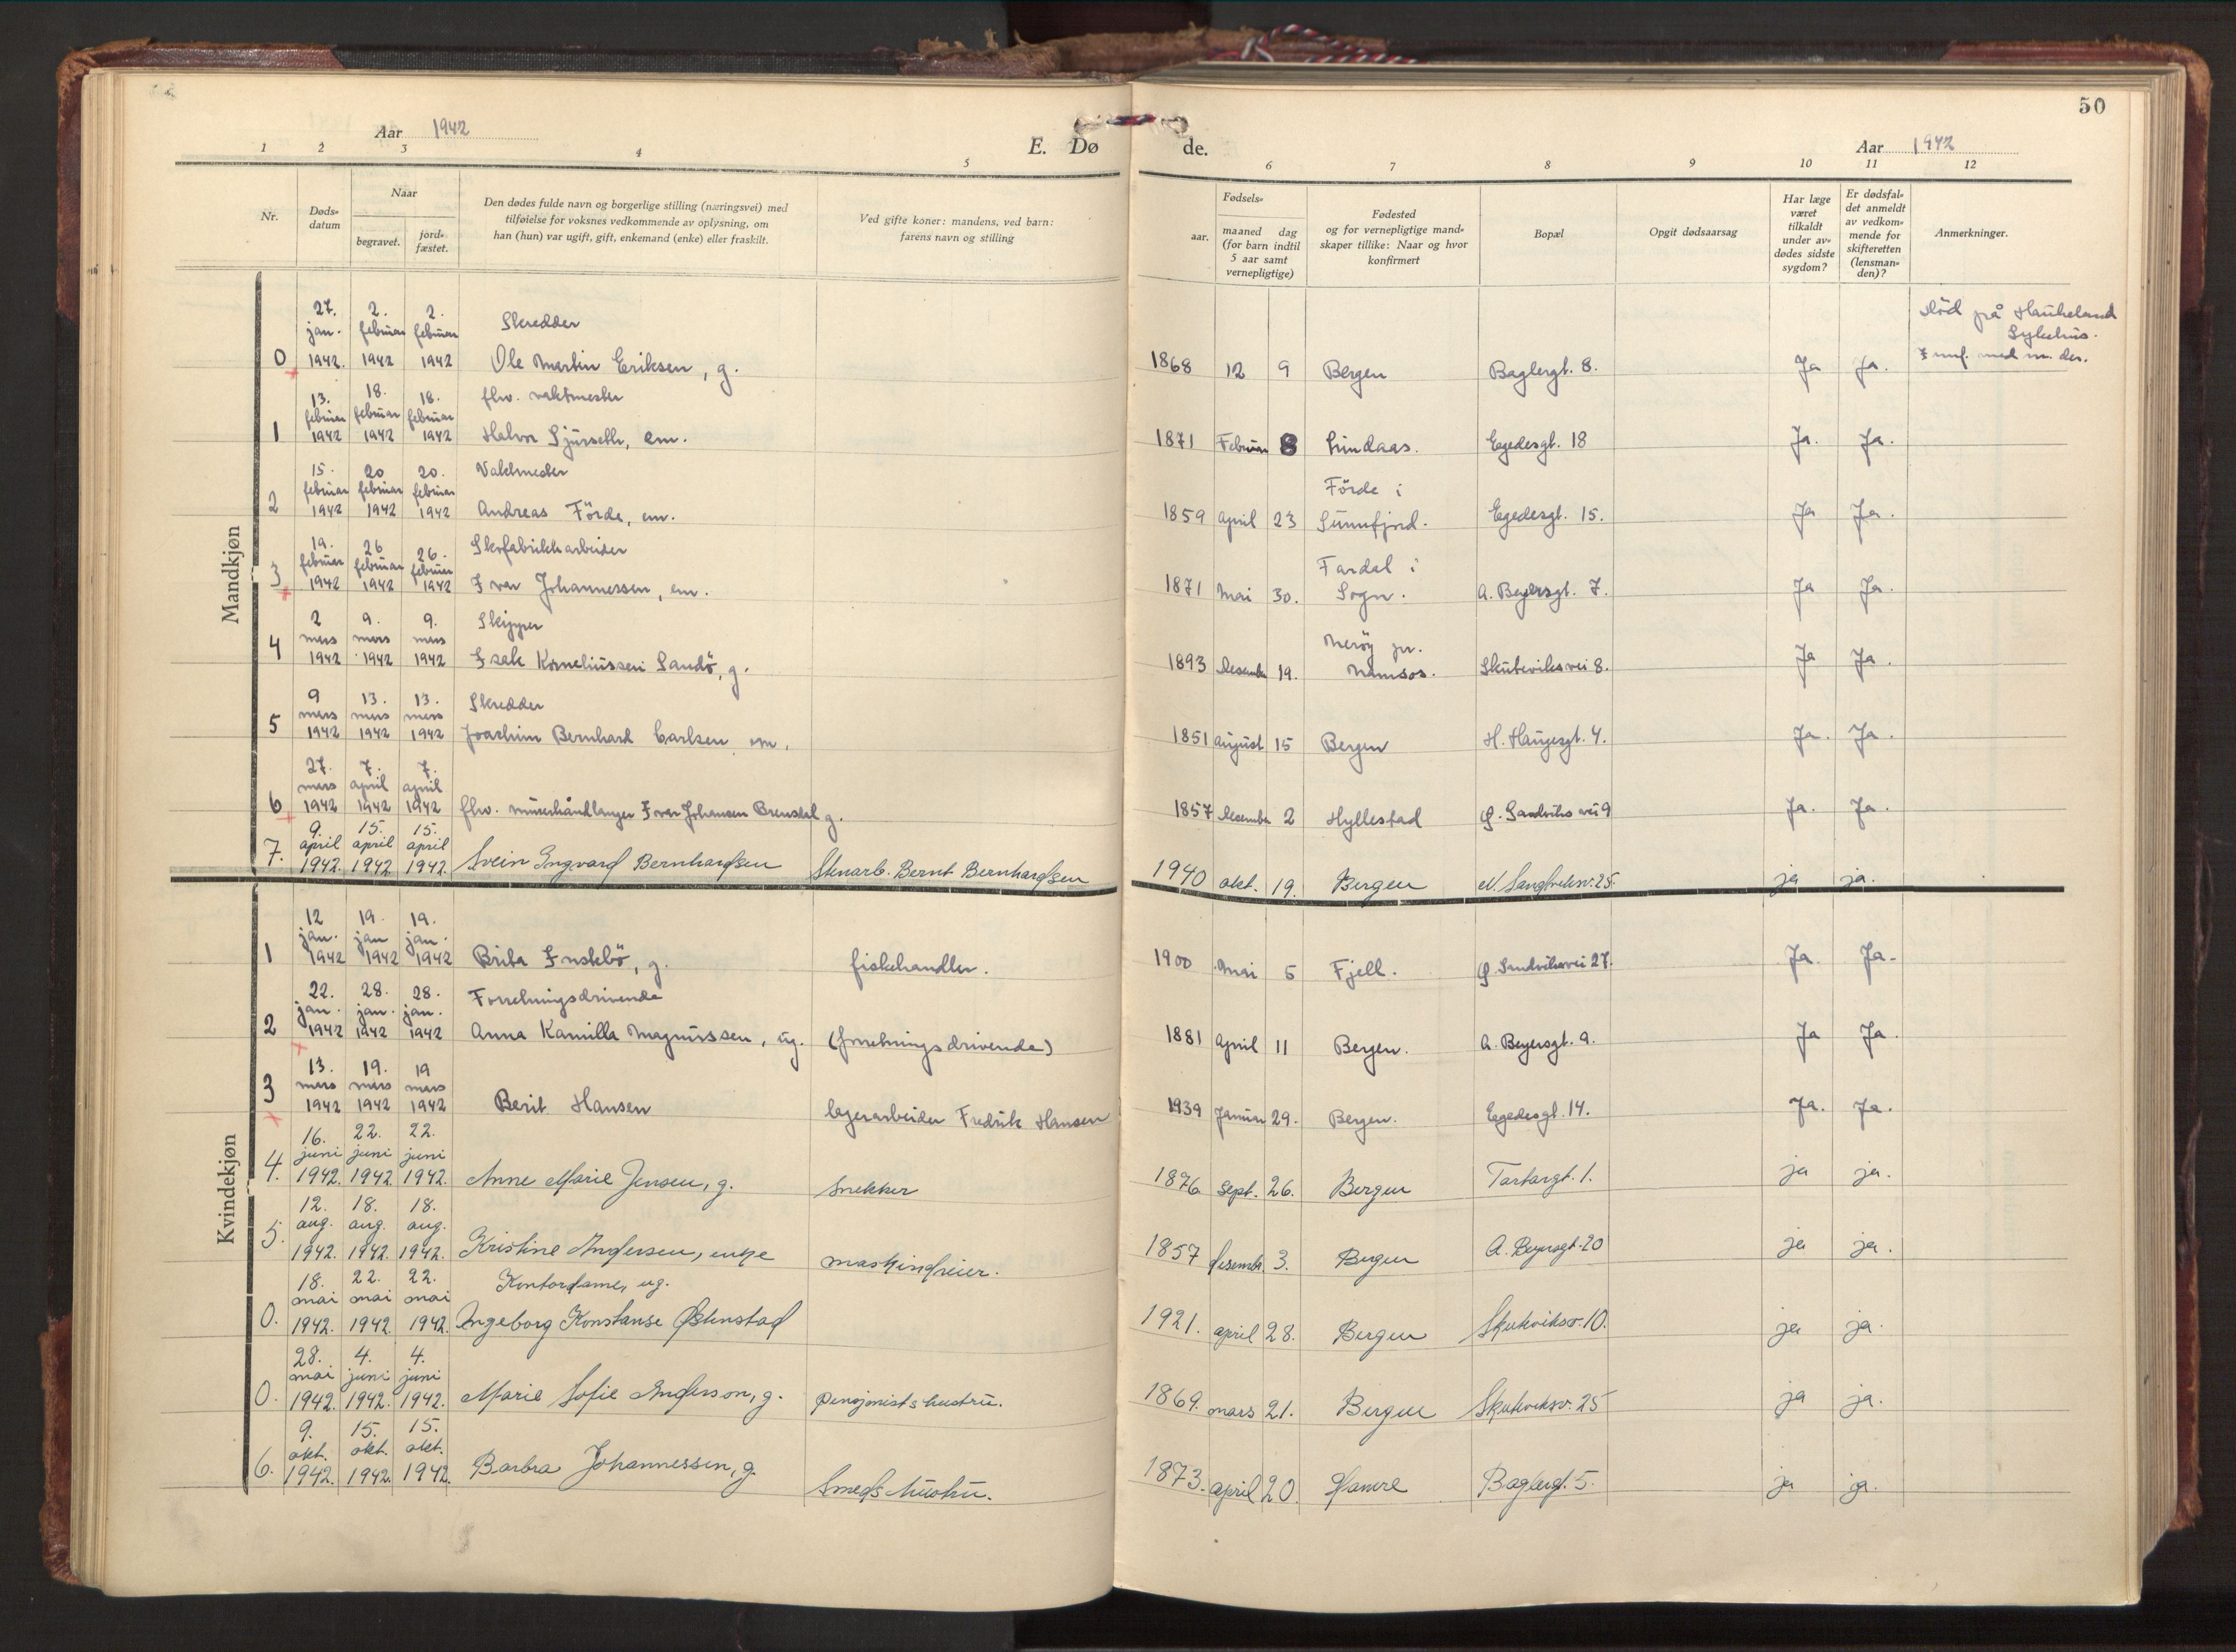 50
Aar 1942
E. Dø
de.
Aar 1942
1 2 3 4 5
6 7 8 9 10 11 12
Nr.
Døds-
datum
Naar
begravet.
jord-
fæstet.
Den dødes fulde navn og borgerlige stilling (næringsvei) med
tilføielse for voksnes vedkommende av oplysning, om
han (hun) var ugift, gift, enkemand (enke) eller fraskilt.
Ved gifte koner: mandens, ved barn:
farens navn og stilling
Fødsels-
aar.
maaned dag
(for barn indtil
5 aar samt
vernepligtige)
Fødested
og for vernepligtige mand-
skaper tillike: Naar og hvor
konfirmert
Bopæl
Opgit dødsaarsag
Har læge
været
tilkaldt
under av-
dødes sidste
sygdom?
Er dødsfal-
det anmeldt
av vedkom-
mende for
skifteretten
(lensman-
den)?
Anmerkninger.
Mandkjøn
27. 2. 2. Skredder
jan. februar februar
0 1942. 1942 1942 Ole Martin Eriksen, g. 1868 12 9 Bergen Baglergt. 8. Ja Ja.
död på Haukeland
Sykehus.
13. 18. 18. fhv. vaktmester
februar februar februar
1 1942 1942 1942 Halvor Sjurseth, em. 1871 Februar 8 Lindaas. Egedesgt. 18 Ja. Ja.
15. 20 20. Vaktmester
februar februar februar Förde i
2 1942 1942 1942 Andreas Förde, em. 1859 April 23 Sunnfjord. Egedesgt. 15. Ja Ja.
19. 26 26. Skofabrikkarbeider
februar februar februar Fardal i
3 1942 1942 1942 Ivar Johannessen, em. 1871 Mai 30. Sogn. A. Beyersgt. 7. Ja Ja.
2 9. 9. Skipper
mars mars mars Neröy pr.
4 1942 1942 1942 Isak Korneliussen Sandö, g. 1893 Desember 19. Namsos. Skuteviksvei 8. Ja Ja.
9 13. 13. Skredder
mars mars mars
5 1942 1942 1942 Joachim Bernhard Carlsen em. 1851 August 15 Bergen H. Haugesgt. 4. Ja. Ja.
27. 7. 7.
mars april april
6 1942 1942 1942 fhv. murerhåndlanger Ivar Johansen Brensdal g. 1857 Desember 2 Hyllestad Ø. Sandviksvei 9 Ja. Ja.
9. 15. 15.
april april april
7. 1942. 1942 1942. Svein Ingvard Bernhardsen Stenarb. Bernt Bernhardsen 1940 okt. 19. Bergen N. Sandviksv. 25 ja ja.
Kvindekjøn
12 19. 19.
jan. jan jan.
1 1942 1942 1942 Brita Knskbö, g. fiskehandler. 1900 Mai 5 Fjell. Ø. Sandviksvei 27. Ja. Ja.
22. 28. 28. Forretningsdrivende
jan. jan. jan.
2 1942 1942 1942 Anna Kamilla Magnussen, ug. (forretningsdrivende) 1881 April 11 Bergen. A. Beyersgt. 9. Ja Ja.
13. 19. 19
mars mars mars
3 1942 1942 1942 Berit Hansen lagerarbeider Fredrik Hansen 1939 Januar 29. Bergen. Egedesgt. 14. Ja. Ja.
16. 22. 22.
juni juni juni
4. 1942. 1942 1942. Anne Marie Jensen, g. Snekker 1876. Sept. 26. Bergen Tartargt. 1. ja ja.
12. 18. 18.
aug. aug. aug.
5. 1942. 1942. 1942. Kristine Andersen, enke maskindreier. 1857 desembr. 3. Bergen A. Beyersgt. 20 ja ja.
18. 22. 22. Kontordame, ug.
mai mai mai
0. 1942. 1942. 1942. Ingeborg Konstanse Østenstad 1921. april 28. Bergen Skuteviksv. 10. ja ja.
28. 4. 4.
mai juni juni
0. 1942. 1942. 1942. Marie Sofie Anderson, g. pensjonists hustru. 1869. mars 21. Bergen Skuteviksv. 25 ja ja.
9. 15. 15.
okt. okt. okt.
6. 1942. 1942. 1942. Barbra Johannessen, g. Smeds hustru. 1873. april 20. Hamre Baglergt. 5. ja ja.